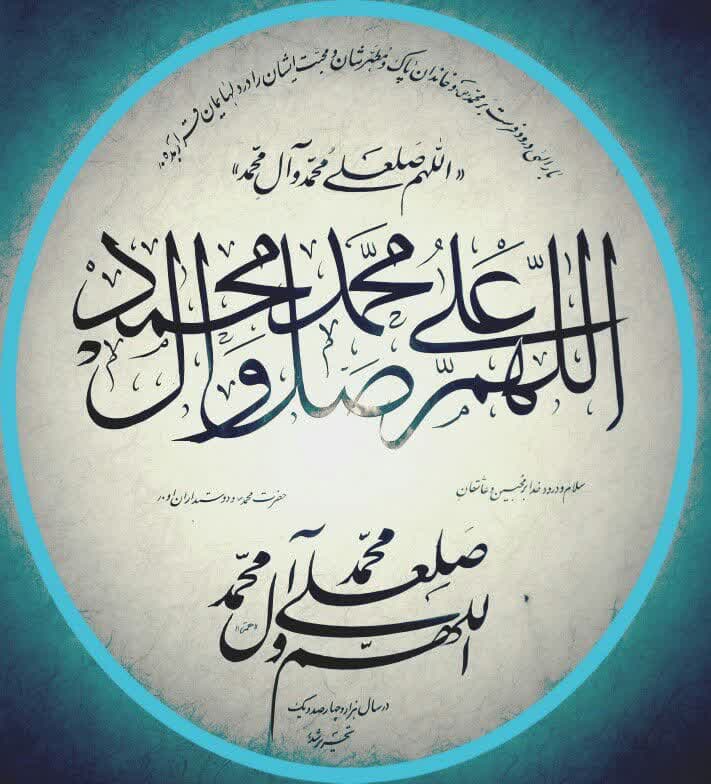 بار الهی درود فرست بر محمد ص و خاندان پاک و مطهرشان و محبت ایشان را در دلهایمان قرار بده
« اللهم صل علی محمد وآل محمد »
اللّهمّ صل عَلی محمّد وآل محمد
سلام و درود خدا بر محبین و عاشقان
حضرت محمد ص و دوستداران او
اللهمّ صلِ علی محمّد وآل محمّد
در سال هزار و چهارصد و یک
تحریر شد